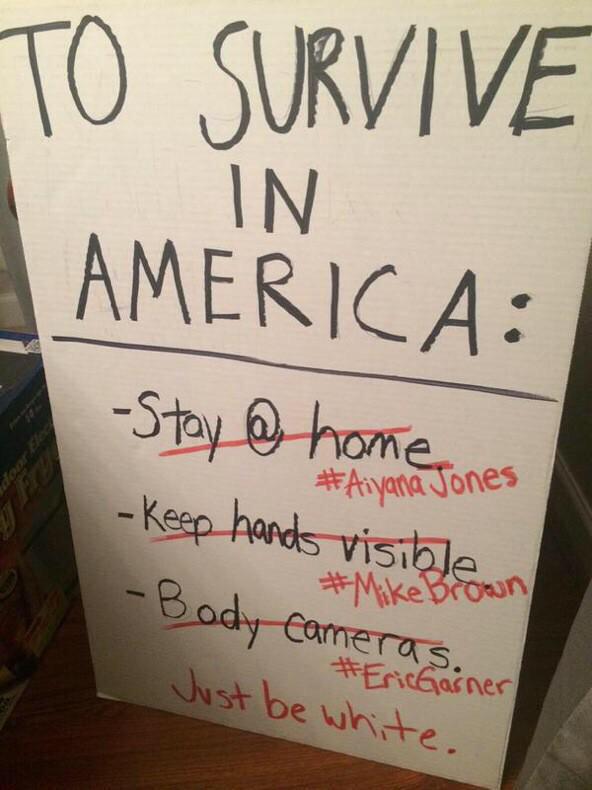 TO SURVIVE
IN
AMERICA:
-Stay @ home.
#AiyanaJones
-Keep hands visible.
#MikeBrown
-Body cameras.
#EricGarner
Just be white.